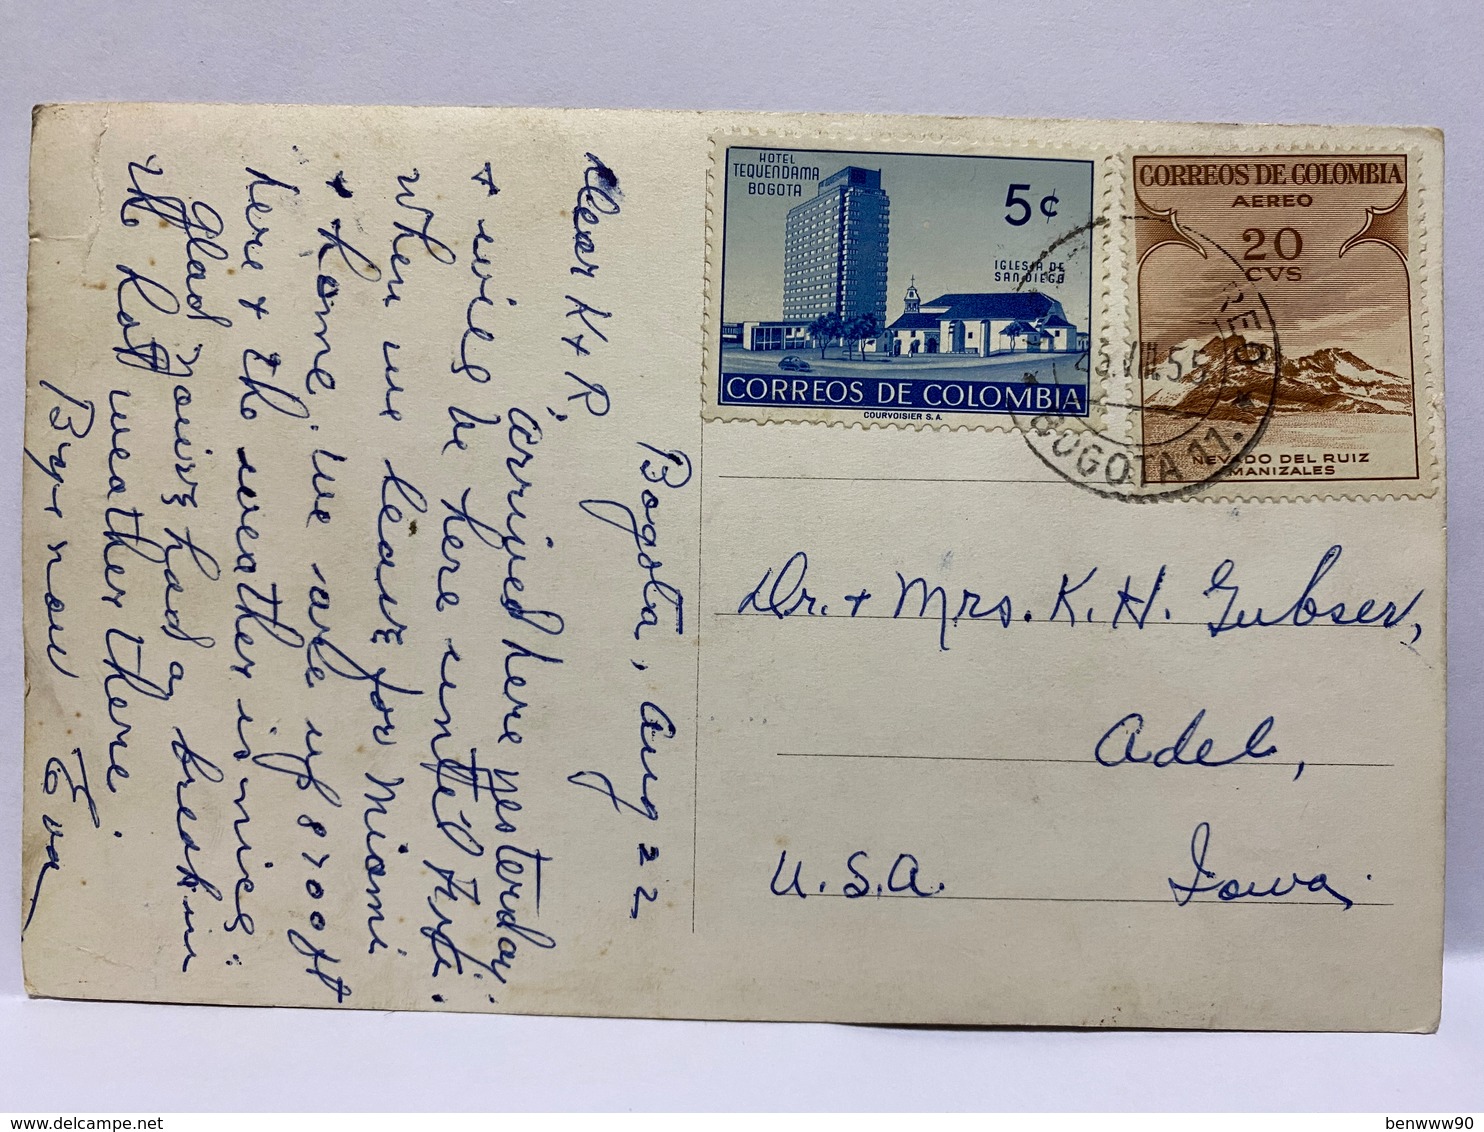 Bogota, Aug 22
Dear K + R,
Arrived here yesterday
+ will be here until Fri.
when we leave for Miami
+ home. We are up 8700 ft
here + the weather is nice.
Glad you've had a break in
the hot weather there.
Bye now Eva
HOTEL
TEQUENDAMA
BOGOTA
5¢
IGLESIA DE
SAN DIEGO
CORREOS DE COLOMBIA
COURVOISIER S.A.
CORREOS DE COLOMBIA
AEREO
20
CVS
NEVADO DEL RUIZ
MANIZALES
VIII.55
BOGOTA 11.
Dr. + Mrs. K. H. Gubser,
Adel,
Iowa
U.S.A.
benwww90